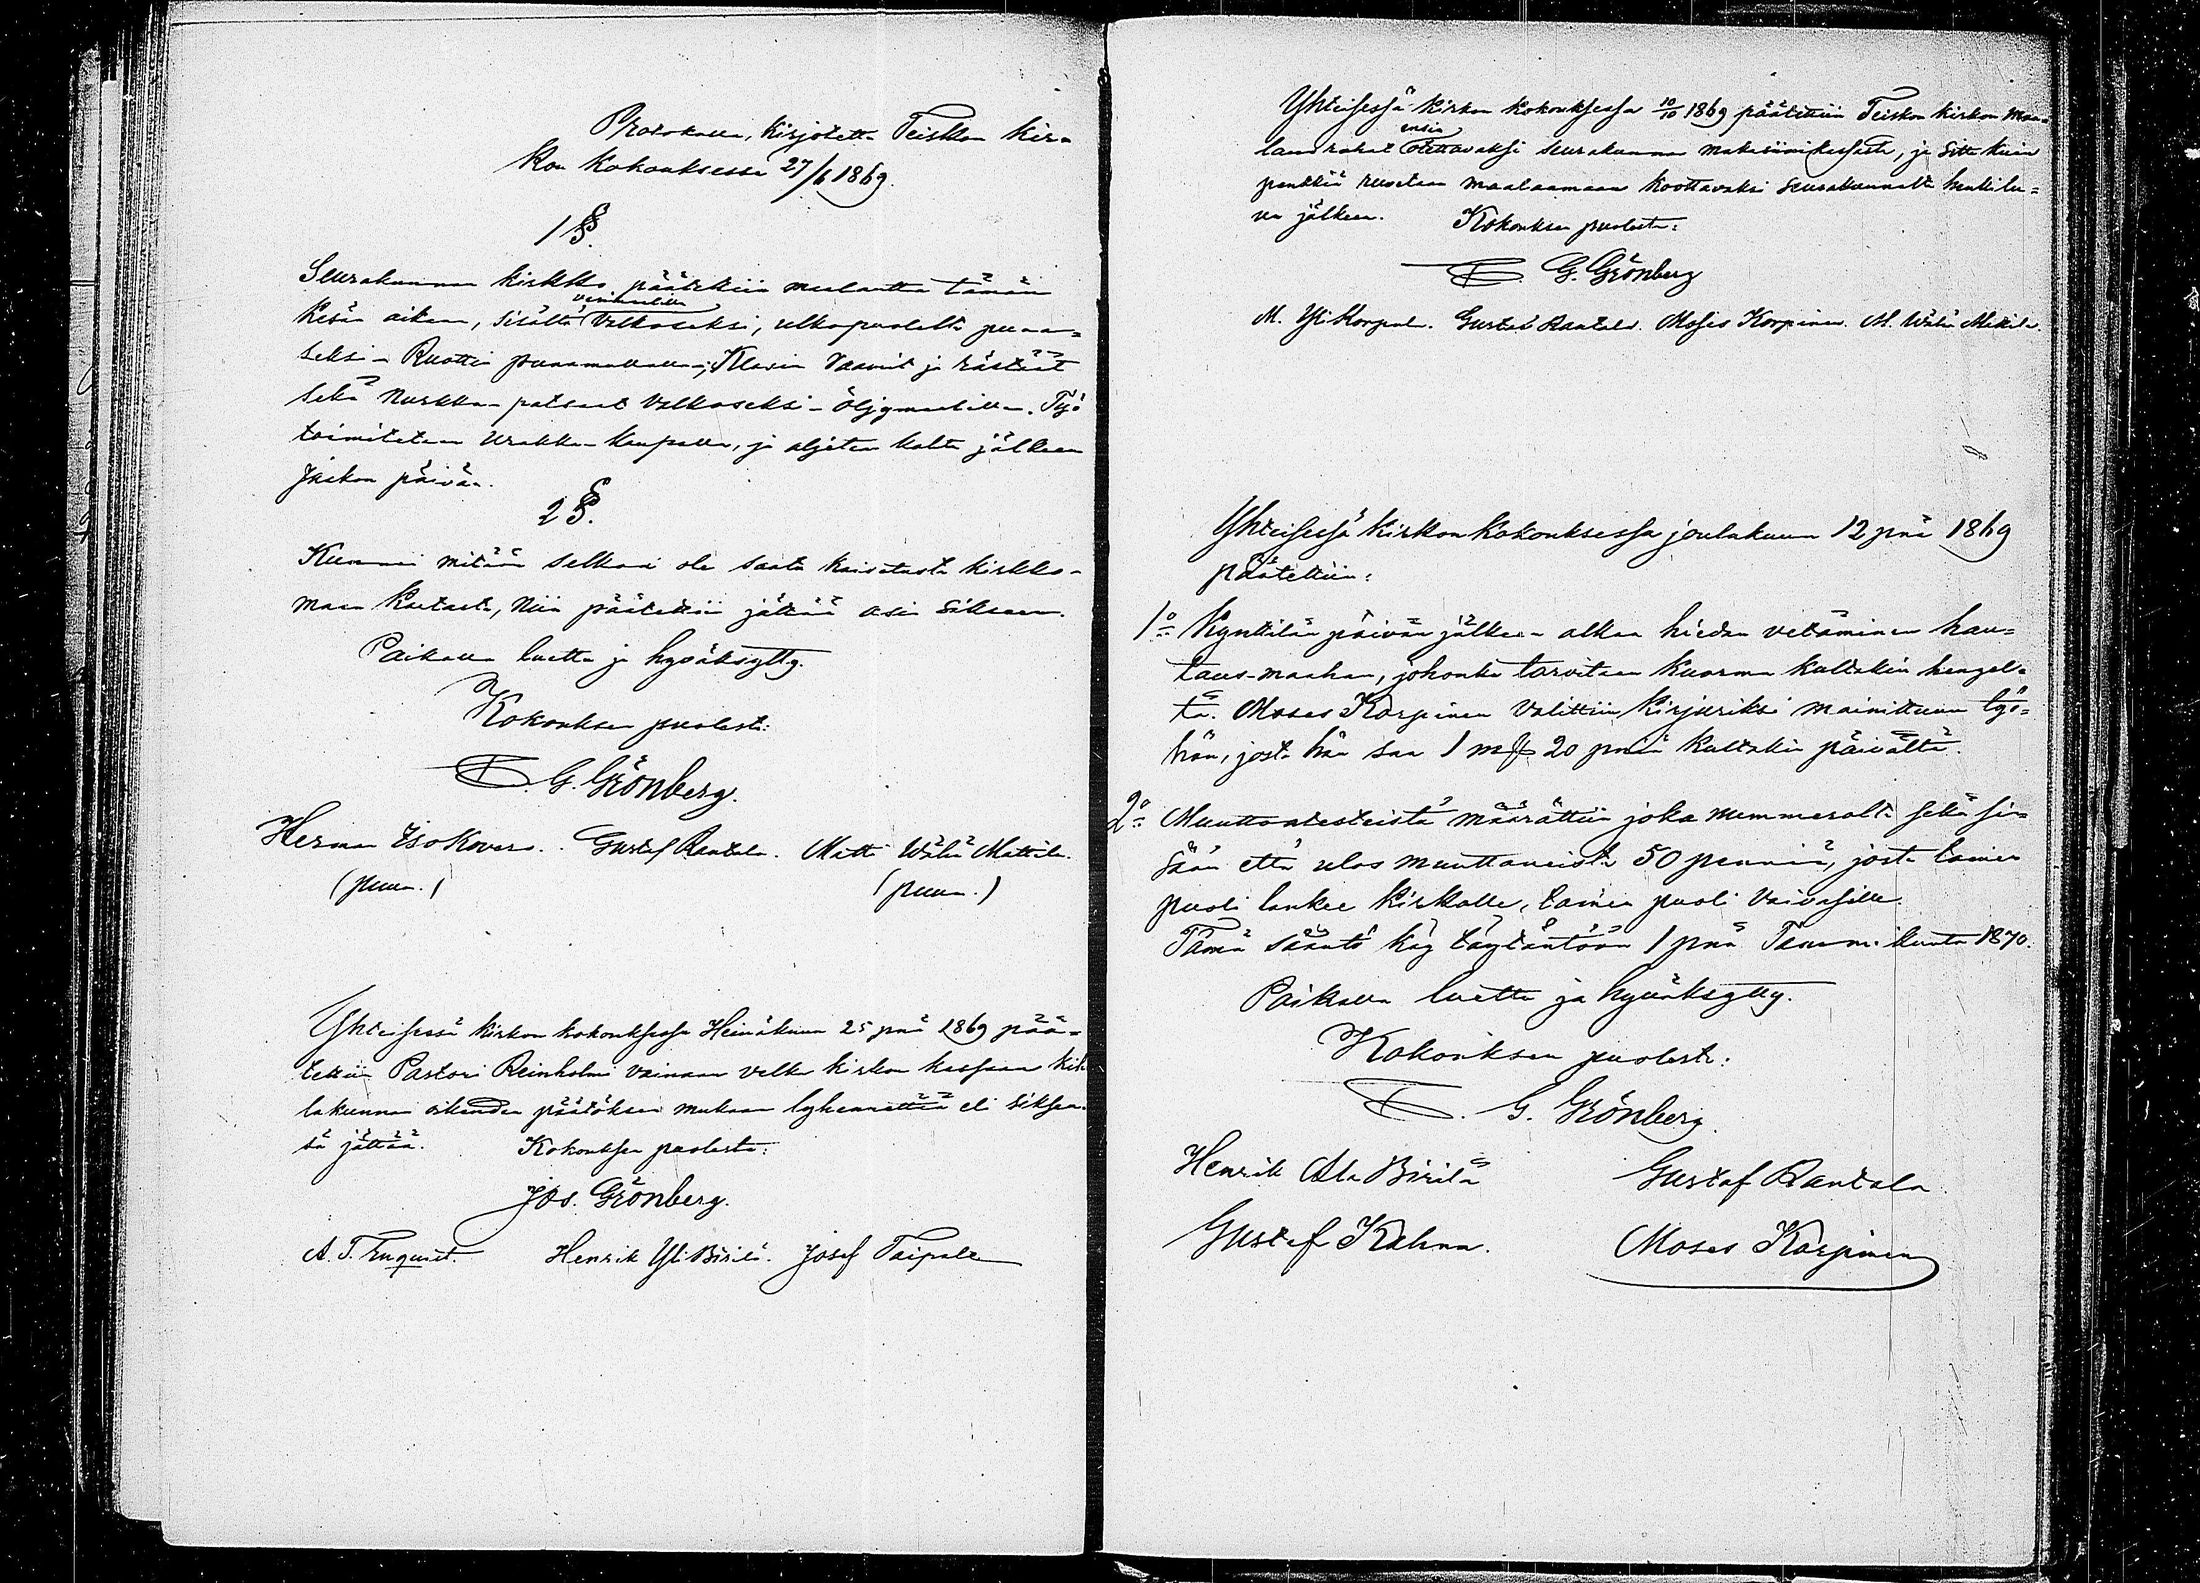 Protokolla, kirjotettu Teiskon kir=
kon kokouksessa 27/6 1869.
1 §.
Seurakunnan kirkko päätettiin maalautta tämän
kesän aikana, sisältä vesimaalilla valkoseksi, ulkopuolelta puna=
seksi - Ruottin punamullalla -; Klasin vaamit ja rästäät
sekä nurkka-patsaat valkoseksi - öljymaalilla. Työ
toimitetaan urakka-kaupalla, ja aljetaan kohta jälkeen
Jaakon päivän.
2 §.
Kun ei mitään selkoa ole saatu kaivetusta kirkko-
maan kaetusta, niin päätettiin jättää asia siksensä.
Paikalla luettu ja hyväksytty.
Kokouksen puolesta:
G. Grönberg.
Herman Isokovero. Gustaf Rantala. Matti Wähä Mattila.
(puum.) (puum.)
Yhteisessä kirkon kokouksessa Heinäkuun 25 pnä 1869 pää=
tettiin Pastori Reinholmi vainaan velka kirkon kassaan kih
lakunnan oikeuden päätöksen mukaan lyhennettää eli siksen=
sä jättää. Kokouksen puolesta:
Jos. Grönberg.
A. T. Enquist. Henrik Yli Birilä. Josef Taipale
Yhteisessä kirkon kokouksessa 10/10 1869 päätettiin Teiskon kirkon maa=
lauu rahat ensin otettavaksi seurakunnan makasiinikassasta, ja sitte kuin
penkkiä ruvetaan maalaamaan koottavaksi seurakunnalta henkilu=
vun jälkeen. Kokouksen puolesta:
G. Grönberg
M. Yli Korpula. Gustaf Rantala. Moses Korpinen. M. Wähä Mattila.
Yhteisessä kirkon kokouksessa joulukuun 12 pnä 1869
päätettiin:
1o Kynttilän päivän jälkeen alkaa hiedan vetäminen hau=
taus-maahan, johonka tarvitaan kuorma kultakin hengel=
tä. Moses Korpinen valittiin kirjuriksi mainittuun työ=
hön, josta hän saa 1 mk 20 pniä kultakin päivältä.
2o Muuttoatesteista määrättiin joka nummerolta sekä si=
sään että ulos muuttaneista 50 penniä, josta toinen
puoli lankee kirkolle, toinen puoli vaivasille.
Tämä sääntö käy täytäntöön 1 pnä Tammikuuta 1870.
Paikalla luettu ja hyväksytty.
Kokouksen puolesta:
G. Grönberg.
Henrik Ala Birilä Gustaf Rantala.
Gustaf Kulma. Moses Korpinen